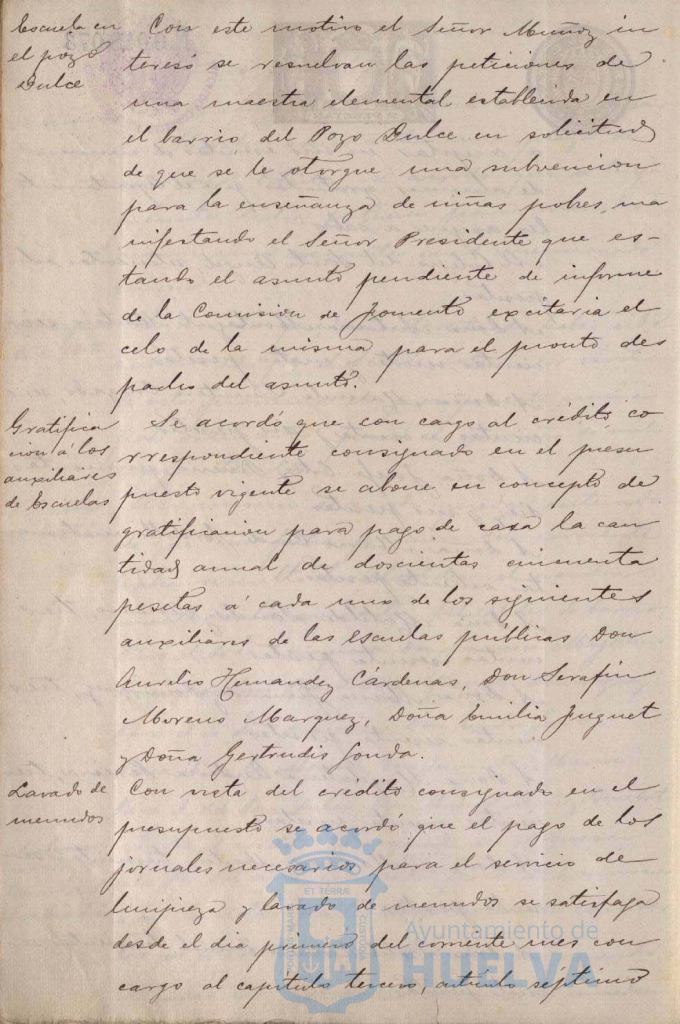 Escuela en
el pozo
Dulce
Con este motivo el Señor Muñoz in
teresó se resuelvan las peticiones de
una maestra elemental establecida en
el barrio del Pozo Dulce en solicitud
de que se le otorgue una subvencion
para la enseñanza de niñas pobres, ma
nifestando el Señor Presidente que es-
tando el asunto pendiente de informe
de la Comision de Fomento excitaria el
celo de la misma para el pronto des
pacho del asunto.
Gratifica
cion á los
auxiliares
de Escuelas
Se acordó que con cargo al crédito co
rrespondiente consignado en el presu
puesto vigente se abone en concepto de
gratificacion para pago de casa la can
tidad annual de doscientas cincuenta
pesetas á cada uno de los siguientes
auxiliares de las escuelas públicas Don
Aurelio Hernandez Cárdenas, Don Serafin
Moreno Marquez, Doña Emilia Juguet
y Doña Gertrudis
Lavado de
menudos
Con vista del crédito consignado en el
presupuesto se acordó que el pago de los
jornales necesarios para el servicio de
limpieza y lavado de menudos se satisfaga
desde el dia primero del corriente mes con
cargo al capitulo tercero, articulo septimo
Ayuntamiento de
HUELVA